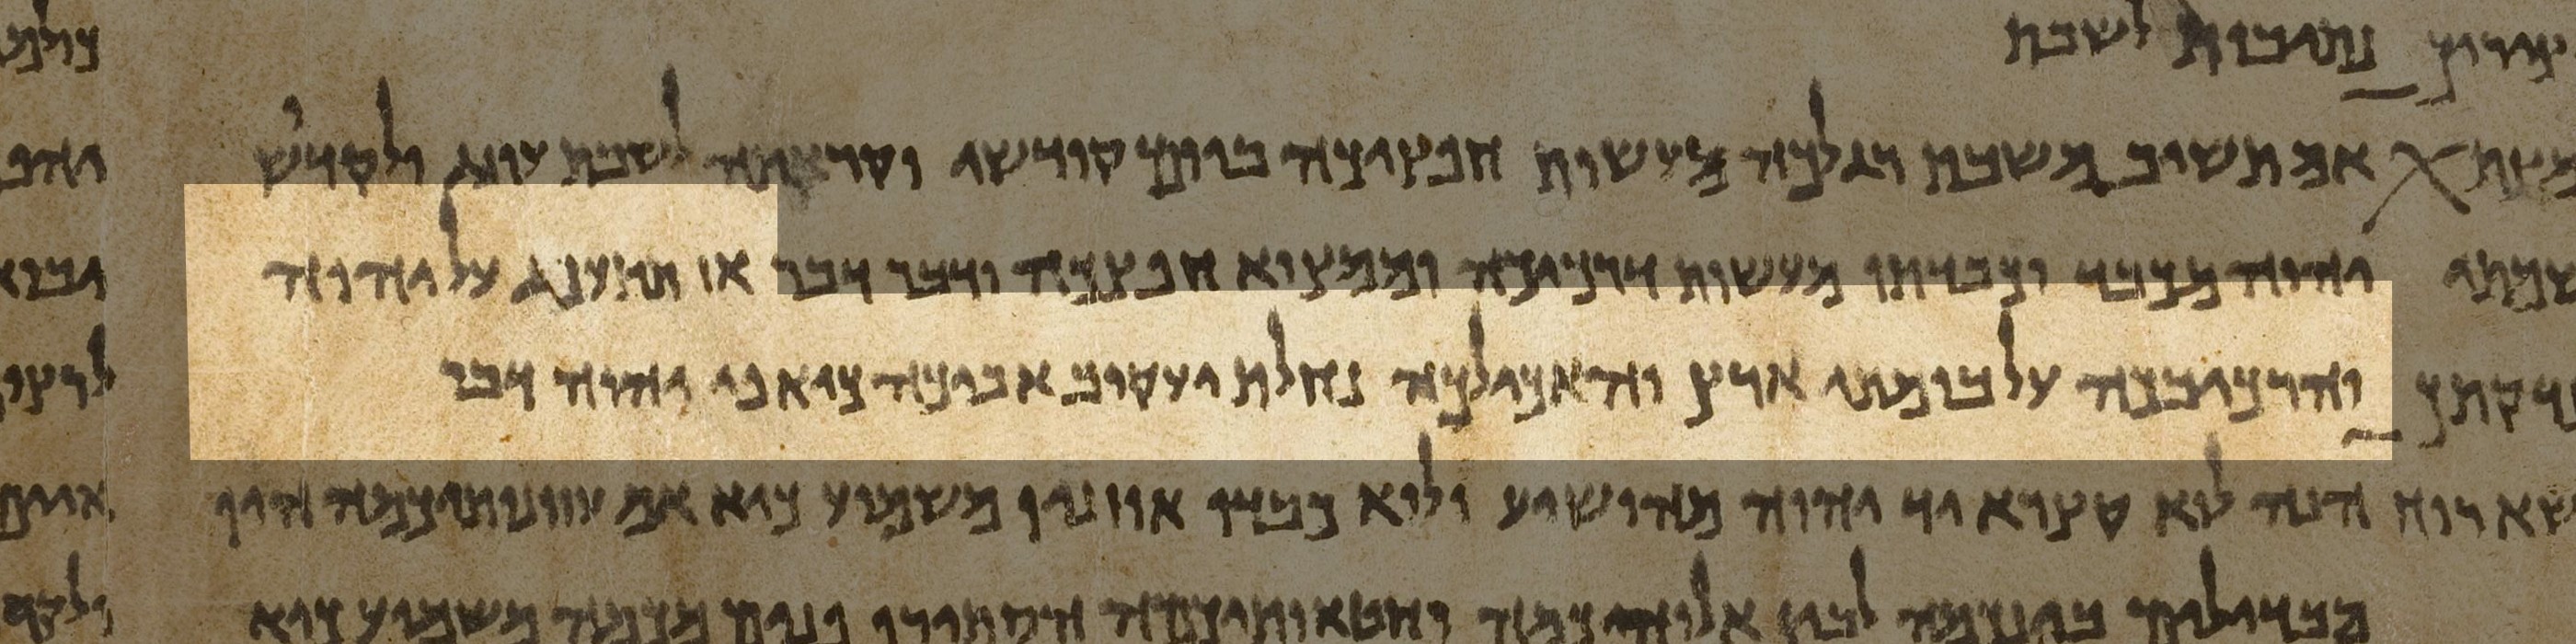 נתיבות לשבת
אם תשיב משבת רגלכה מעשות חפציכה ביום קודשי וקריתה לשבת ענג ולקדוש
יהוה מכבד וכבדתו מעשות דרכיכה וממצוא חפצכה ודבר דבר אז תתענג על יהוה
והרכיבכה על בומתי ארץ והאכילכה נחלת יעקוב אביכה כיא פי יהוה דבר
הנה לא קצרא יד יהוה מהושיע ולוא משמוע כיא אם עוונותיכמה היו
מבדילים בינכמה לבין אלוהיכמה וחטאותיכמה הסתירו פנים מכמה משמוע כיא